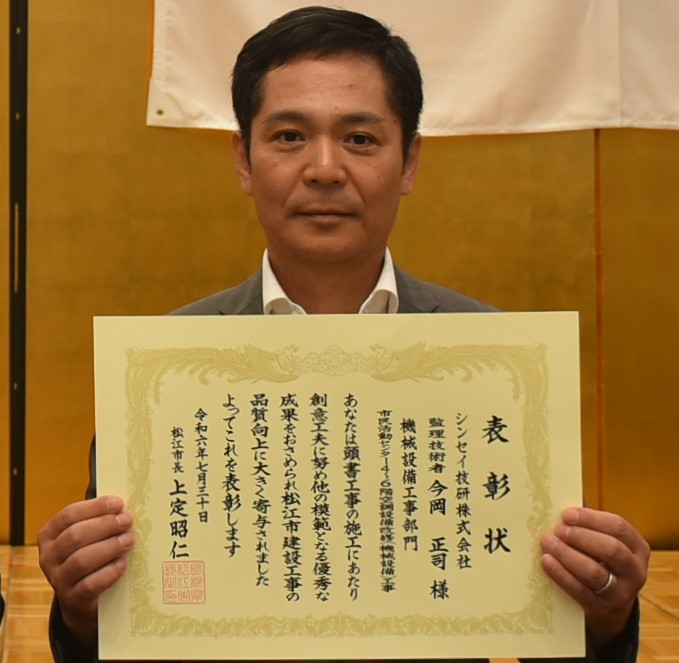 表彰状
シンセイ技研株式会社
監理技術者 今岡 正司 様
機械設備工事部門
市民活動センター4~6階空調設備改修機械設備工事
あなたは頭書工事の施工にあたり
創意工夫に努め他の模範となる優秀な
成果をおさめられ松江市建設工事の
品質向上に大きく寄与されました
よってこれを表彰します
令和六年七月三十日
松江市長 上定昭仁